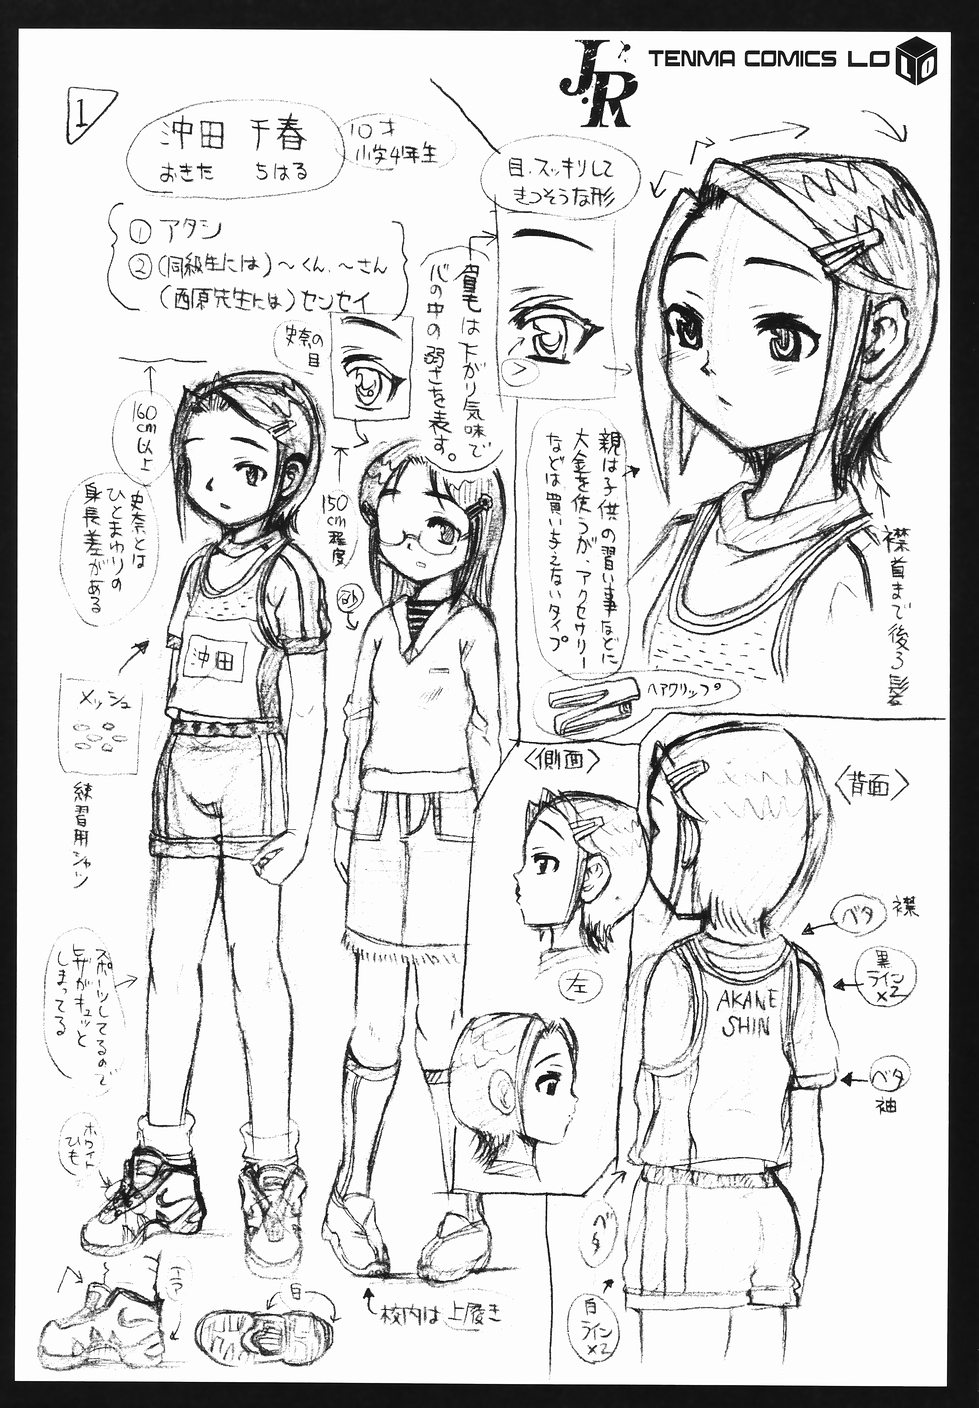 JR
TENMA COMICS LO
LO
1
沖田 千春
おきた ちはる
10才
小学4年生
① アタシ
② (同級生には) 〜くん、〜さん
(西原先生には) センセイ
目、スッキリして
きつそうな形
眉毛は下がり気味で
心の中の弱さを表す。
史奈の
目
160
cm
以上
史奈とは
ひとまわりの
身長差がある
150
cm
程度
親は子供の習い事などに
大金を使うが、アクセサリー
などは買い与えないタイプ
襟首まで後ろ髪
ヘアクリップ
沖田
メッシュ
練習用シャツ
〈側面〉
〈背面〉
左
ベタ
襟
黒
ライン
×2
AKANE
SHIN
ベタ
袖
スポーツしてるので
足がキュッと
しまってる
ホワイト
ひも
ベタ
白
ライン
×2
エア
白
校内は上履き